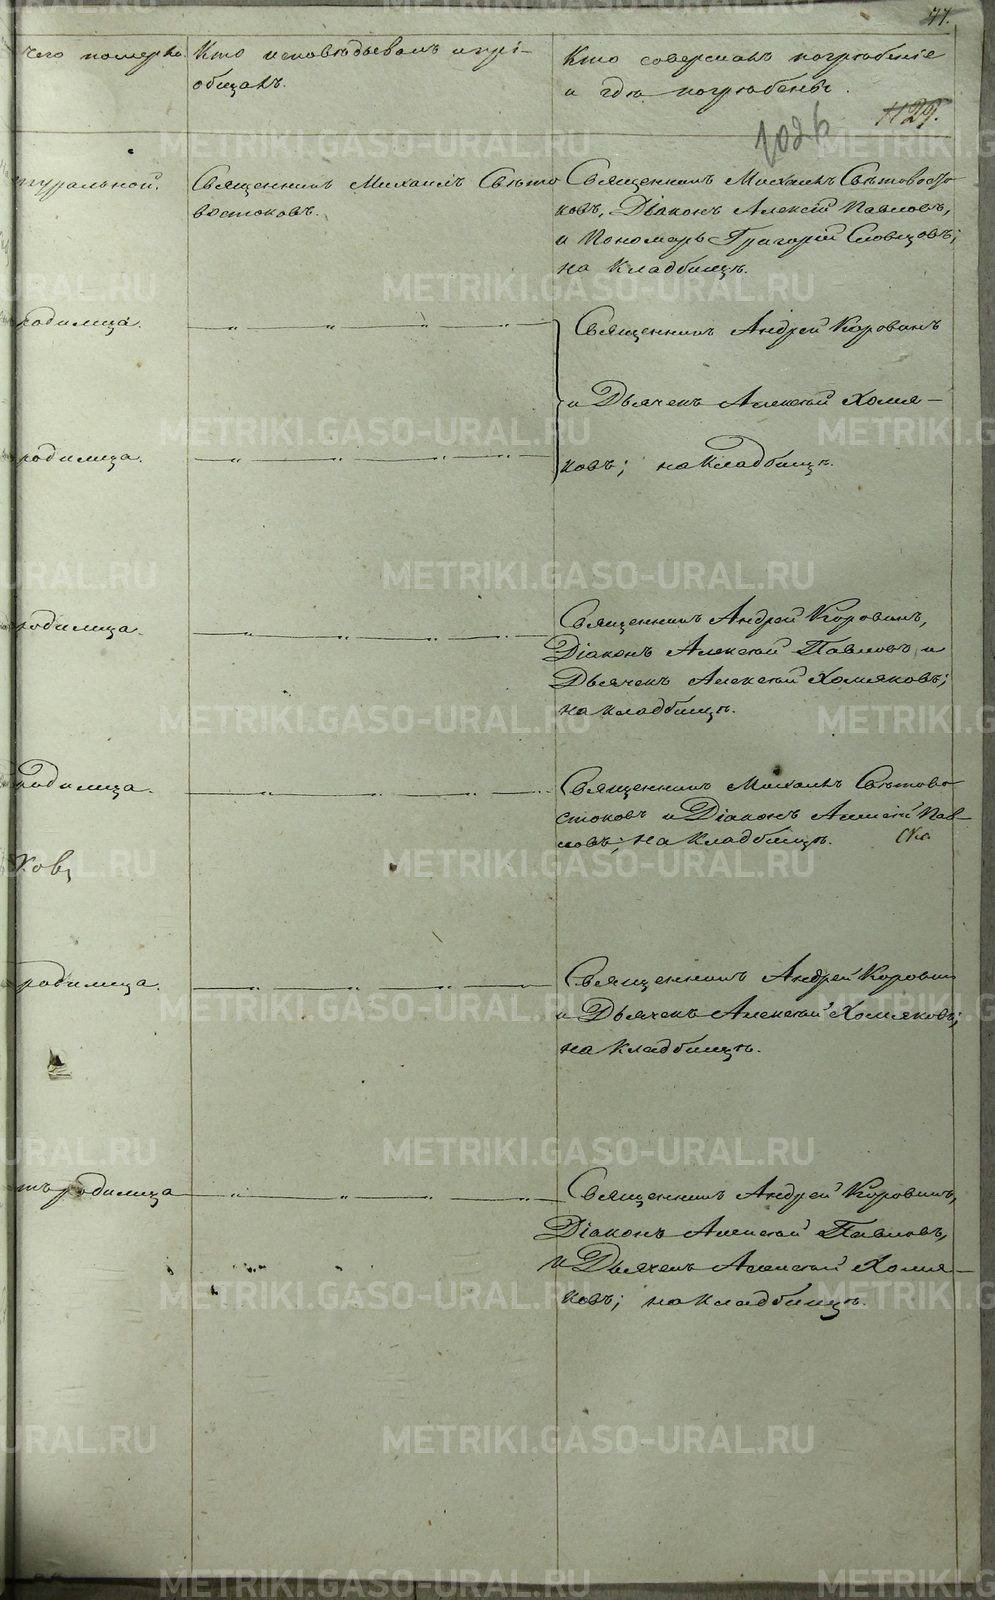 77.
чего померъ. Кто исповѣдывалъ и прі-
общалъ.
Кто совершалъ погребеніе
и гдѣ погребены.
1129.
1026
туральной.
Священникъ Михаилъ Свѣто
востоковъ.
Священникъ Михаилъ Свѣтовосто
ковъ, Діаконъ Алексій Павловъ,
и Пономарь Григорій Словцовъ;
на Кладбищѣ.
родимца.
Священникъ Андрей Коровинъ
и Дьячекъ Алексѣй Хомя-
ковъ; на Кладбищѣ.
родимца.
родимца.
Священникъ Андрей Коровинъ,
Діаконъ Алексѣй Павловъ и
Дьячекъ Алексѣй Хомяковъ;
на кладбищѣ.
родимца.
Священникъ Михаилъ Свѣтово
стоковъ и Діаконъ Алексій Пав-
ловъ; на Кладбищѣ.
ковъ
родимца.
Священникъ Андрей Коровин
и Дьячекъ Алексѣй Хомяковъ;
на Кладбищѣ.
тъ родимца
Священникъ Андрей Коровинъ,
Діаконъ Алексѣй Павловъ,
и Дьячекъ Алексѣй Хомя-
ковъ; на кладбищѣ.
METRIKI.GASO-URAL.RU